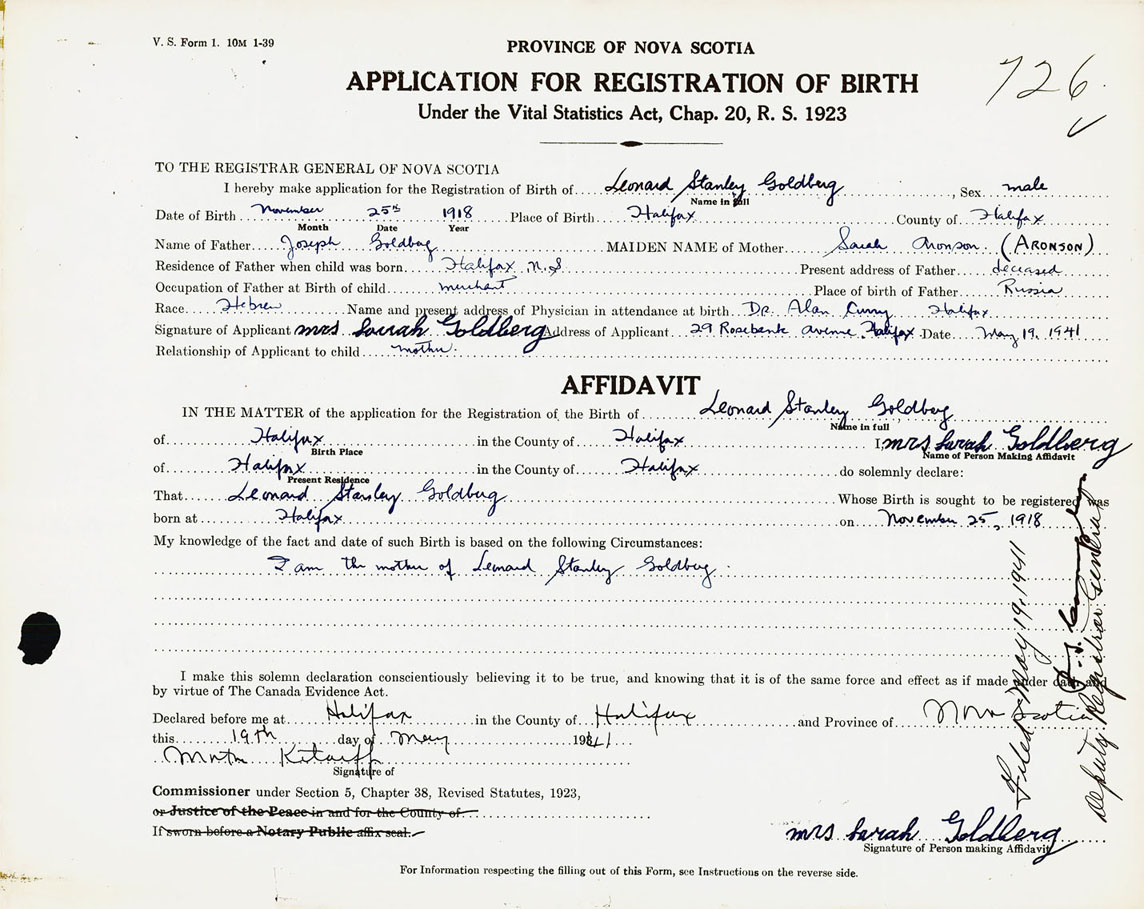 V. S. Form 1. 10M 1-39
PROVINCE OF NOVA SCOTIA
726
APPLICATION FOR REGISTRATION OF BIRTH
Under the Vital Statistics Act, Chap. 20, R. S. 1923
TO THE REGISTRAR GENERAL OF NOVA SCOTIA
I hereby make application for the Registration of Birth of Leonard Stanley Goldberg, Sex male
Name in full
Date of Birth November 25th 1918 Place of Birth Halifax County of Halifax
Month Date Year
Name of Father Joseph Goldberg MAIDEN NAME of Mother Sarah Aronson (ARONSON)
Residence of Father when child was born Halifax N.S Present address of Father deceased
Occupation of Father at Birth of child merchant Place of birth of Father Russia
Race Hebrew Name and present address of Physician in attendance at birth Dr. Alan Curry Halifax
Signature of Applicant mrs Sarah Goldberg Address of Applicant 29 Rosebank avenue Halifax Date May 19, 1941
Relationship of Applicant to child mother.
AFFIDAVIT
IN THE MATTER of the application for the Registration of the Birth of Leonard Stanley Goldberg
Name in full
of Halifax in the County of Halifax I, mrs Sarah Goldberg
Birth Place Name of Person Making Affidavit
of Halifax in the County of Halifax do solemnly declare:
Present Residence
That Leonard Stanley Goldberg Whose Birth is sought to be registered was
born at Halifax on November 25, 1918
My knowledge of the fact and date of such Birth is based on the following Circumstances:
I am the mother of Leonard Stanley Goldberg.
I make this solemn declaration conscientiously believing it to be true, and knowing that it is of the same force and effect as if made under oath and
by virtue of The Canada Evidence Act.
Declared before me at Halifax in the County of Halifax and Province of Nova Scotia
this 19th day of May 1941
Kitaiff
Signature of
Commissioner under Section 5, Chapter 38, Revised Statutes, 1923,
or Justice of the Peace in and for the County of
If sworn before a Notary Public affix seal.
mrs Sarah Goldberg
Signature of Person making Affidavit
For Information respecting the filling out of this Form, see Instructions on the reverse side.
Filed May 19, 1941
Deputy Registrar General